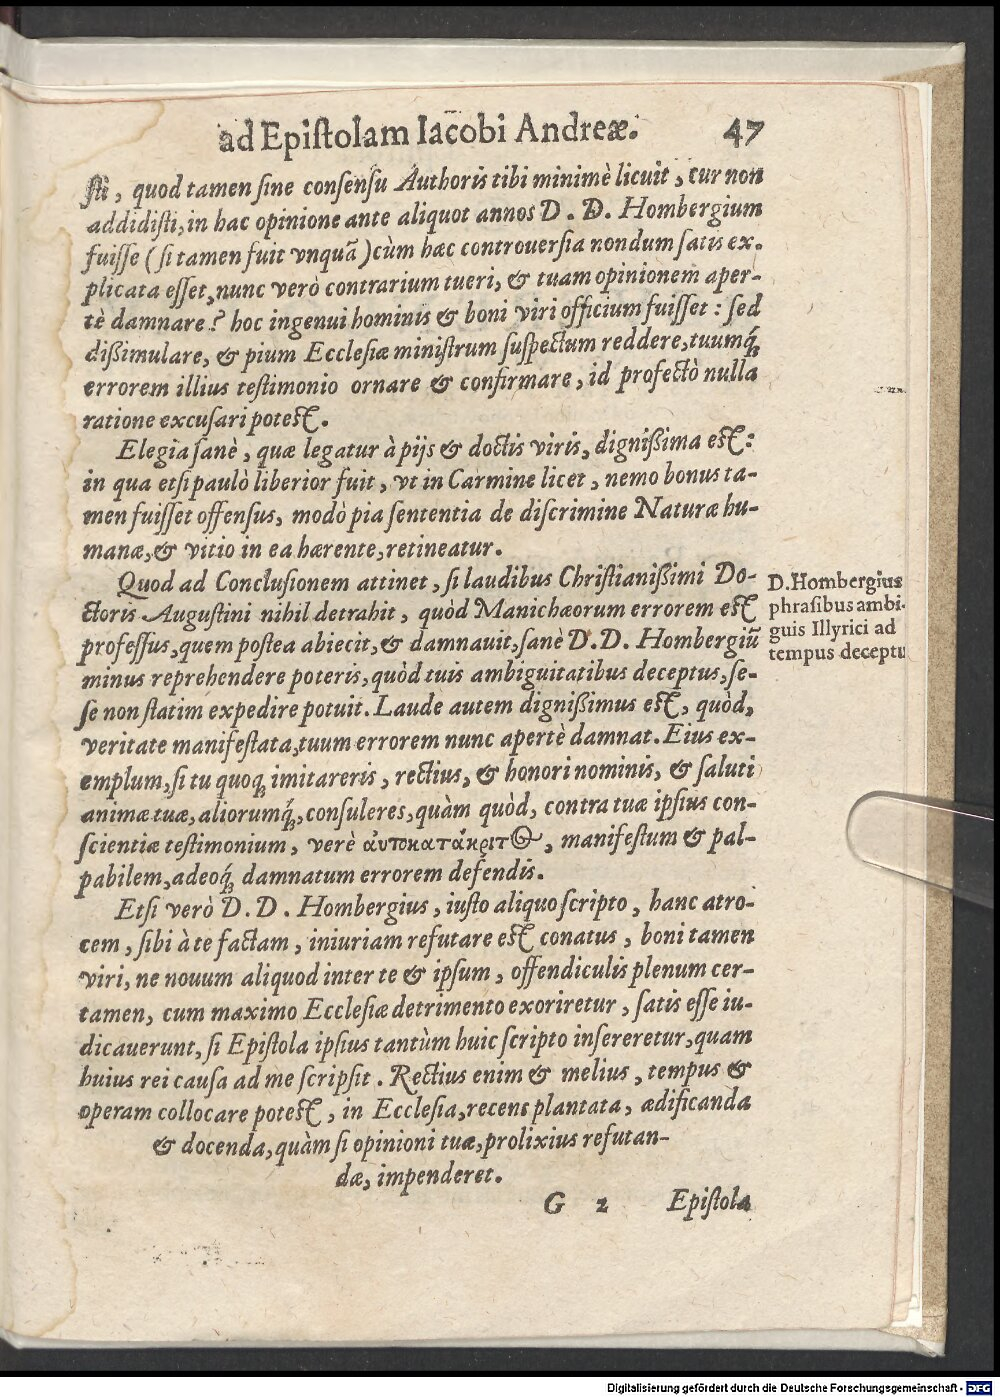 ad Epiſtolam Iacobi Andreæ. 47
ſti, quod tamen ſine conſenſu Authoris tibi minimè licuit, cur non
addidiſti, in hac opinione ante aliquot annos D. D. Hombergium
fuiſſe (ſi tamen fuit vnquã) cùm hæc controuerſia nondum ſatis ex.
plicata eſſet, nunc verò contrarium tueri, & tuam opinionem aper-
tè damnare? hoc ingenui hominis & boni viri officium fuiſſet: ſed
dißimulare, & pium Eccleſiæ miniſtrum ſuſpectum reddere, tuumq́;
errorem illius teſtimonio ornare & confirmare, id profectò nulla
ratione excuſari poteſt.
Elegia ſanè, quæ legatur à pijs & doctis viris, dignißima eſt:
in qua etſi paulò liberior fuit, vt in Carmine licet, nemo bonus ta-
men fuiſſet offenſus, modò pia ſententia de diſcrimine Naturæ hu-
manæ, & vitio in ea hærente, retineatur.
Quod ad Concluſionem attinet, ſi laudibus Chriſtianißimi Do-
ctoris Auguſtini nihil detrahit, quòd Manichæorum errorem eſt
profeſſus, quem poſtea abiecit, & damnauit, ſanè D. D. Hombergiũ
minus reprehendere poteris, quòd tuis ambiguitatibus deceptus, ſe-
ſe non ſtatim expedire potuit. Laude autem dignißimus eſt, quòd,
veritate manifeſtata, tuum errorem nunc apertè damnat. Eius ex-
emplum, ſi tu quoq; imitareris, rectius, & honori nominis, & ſaluti
animæ tuæ, aliorumq́;, conſuleres, quàm quòd, contra tuæ ipſius con-
ſcientiæ teſtimonium, verè ἀυτοκατάκριτος, manifeſtum & pal-
pabilem, adeoq́; damnatum errorem defendis.
Etſi verò D. D. Hombergius, iuſto aliquo ſcripto, hanc atro-
cem, ſibi à te factam, iniuriam refutare eſt conatus, boni tamen
viri, ne nouum aliquod inter te & ipſum, offendiculis plenum cer-
tamen, cum maximo Eccleſiæ detrimento exoriretur, ſatis eſſe iu-
dicauerunt, ſi Epiſtola ipſius tantùm huic ſcripto inſereretur, quam
huius rei cauſa ad me ſcripſit. Rectius enim & melius, tempus &
operam collocare poteſt, in Eccleſia, recens plantata, ædificanda
& docenda, quàm ſi opinioni tuæ, prolixius refutan-
dæ, impenderet.
G 2 Epiſtola
D. Hombergius
phraſibus ambi-
guis Illyrici ad
tempus deceptu
Digitalisierung gefördert durch die Deutsche Forschungsgemeinschaft - DFG